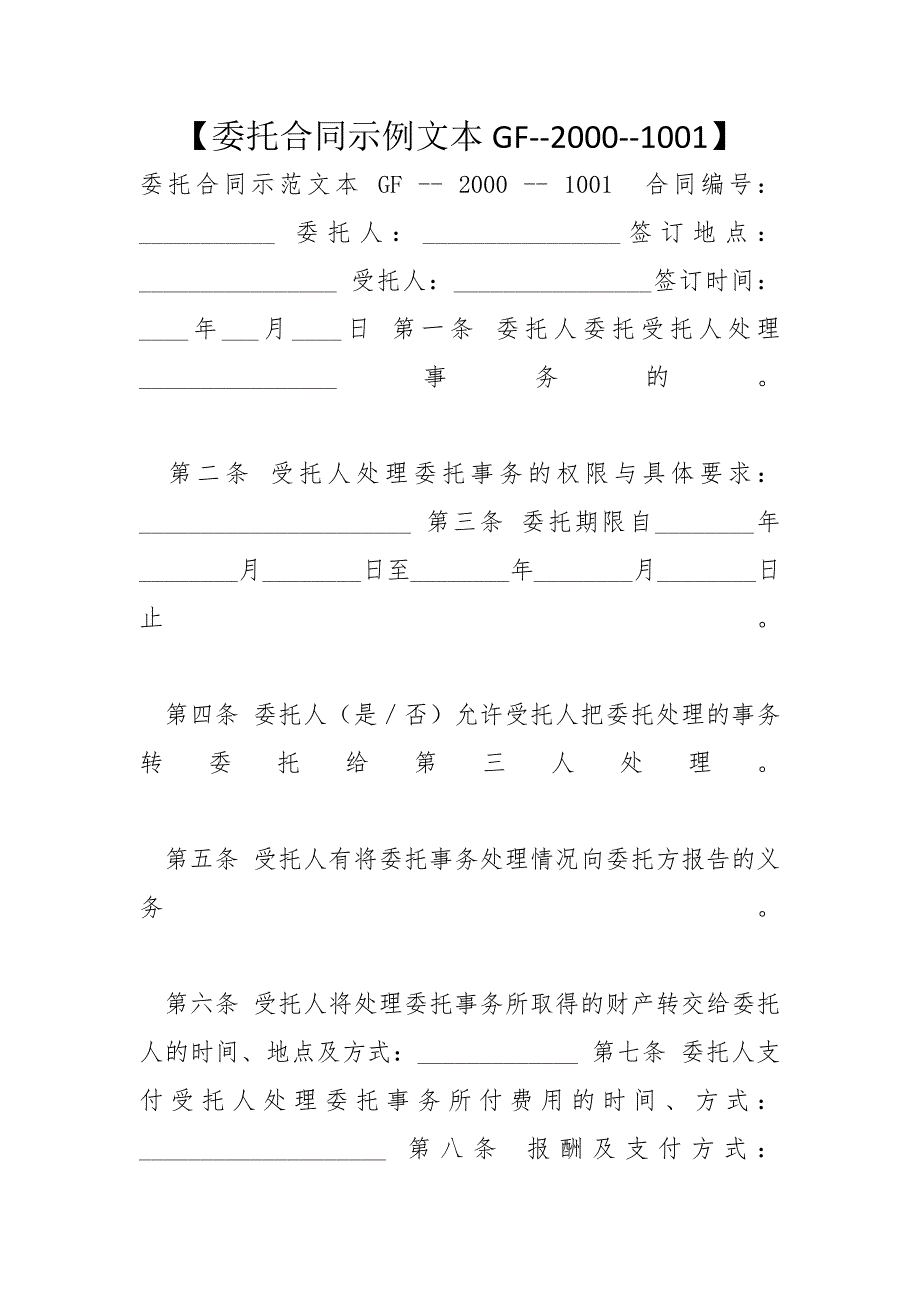 【委托合同示例文本 GF--2000--1001】
委托合同示范文本 GF -- 2000 -- 1001 合同编号：
___________ 委托人：________________签订地点：
________________ 受托人：________________签订时间：
____年___月____日 第一条 委托人委托受托人处理
________________ 事务的。
第二条 受托人处理委托事务的权限与具体要求：
______________________ 第三条 委托期限自________年
________月________日至________年________月________日
止。
第四条 委托人（是／否）允许受托人把委托处理的事务
转委托给第三人处理。
第五条 受托人有将委托事务处理情况向委托方报告的义
务。
第六条 受托人将处理委托事务所取得的财产转交给委托
人的时间、地点及方式：_____________ 第七条 委托人支
付受托人处理委托事务所付费用的时间、方式：
____________________ 第八条 报酬及支付方式：